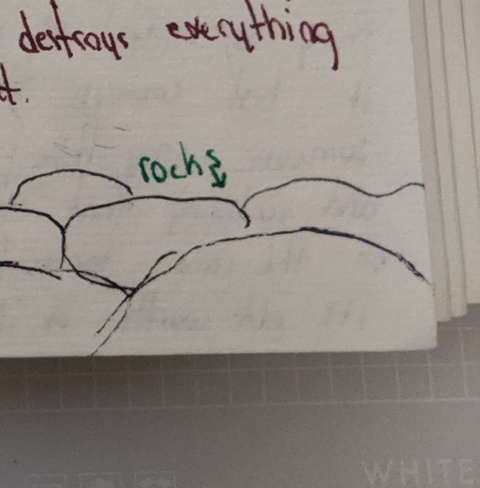 destroys everything
t.
rocks
WHITE